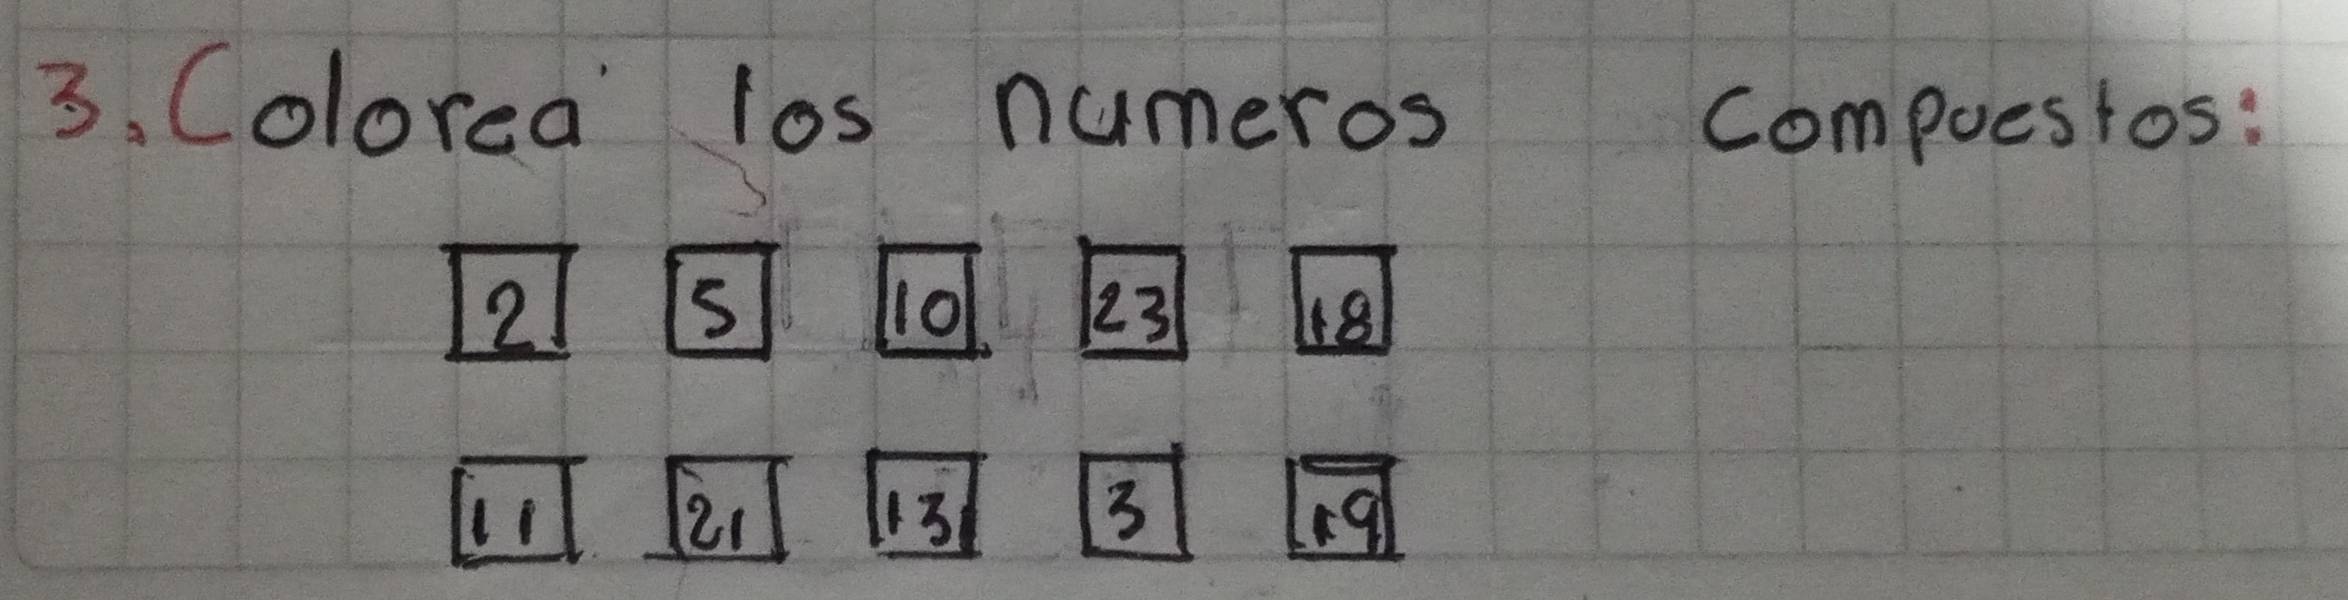 3. Colorea los numeros compuestos:
2 5 10 23 18
11 21 13 3 19